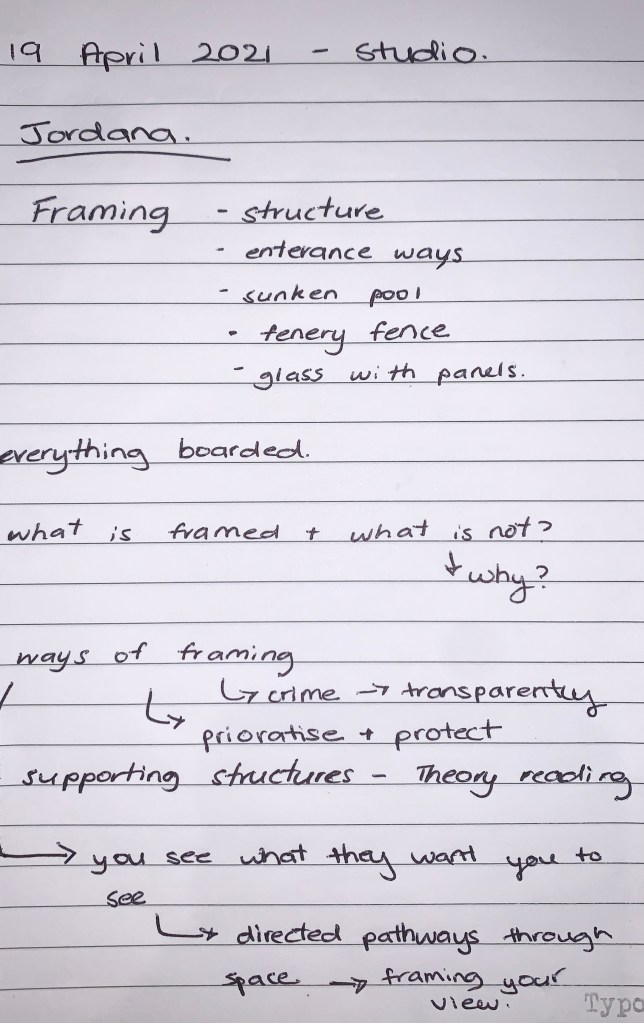 19 April 2021 - Studio.
Jordana.
Framing - structure
- enterance ways
- sunken pool
- tenery fence
- glass with panels.
everything boarded.
what is framed + what is not?
↓ why?
ways of framing
↳ crime → transparently
↳ prioratise + protect
supporting structures - Theory reading
→ you see what they want you to
see
↳ directed pathways through
space → framing your
view.
Typo